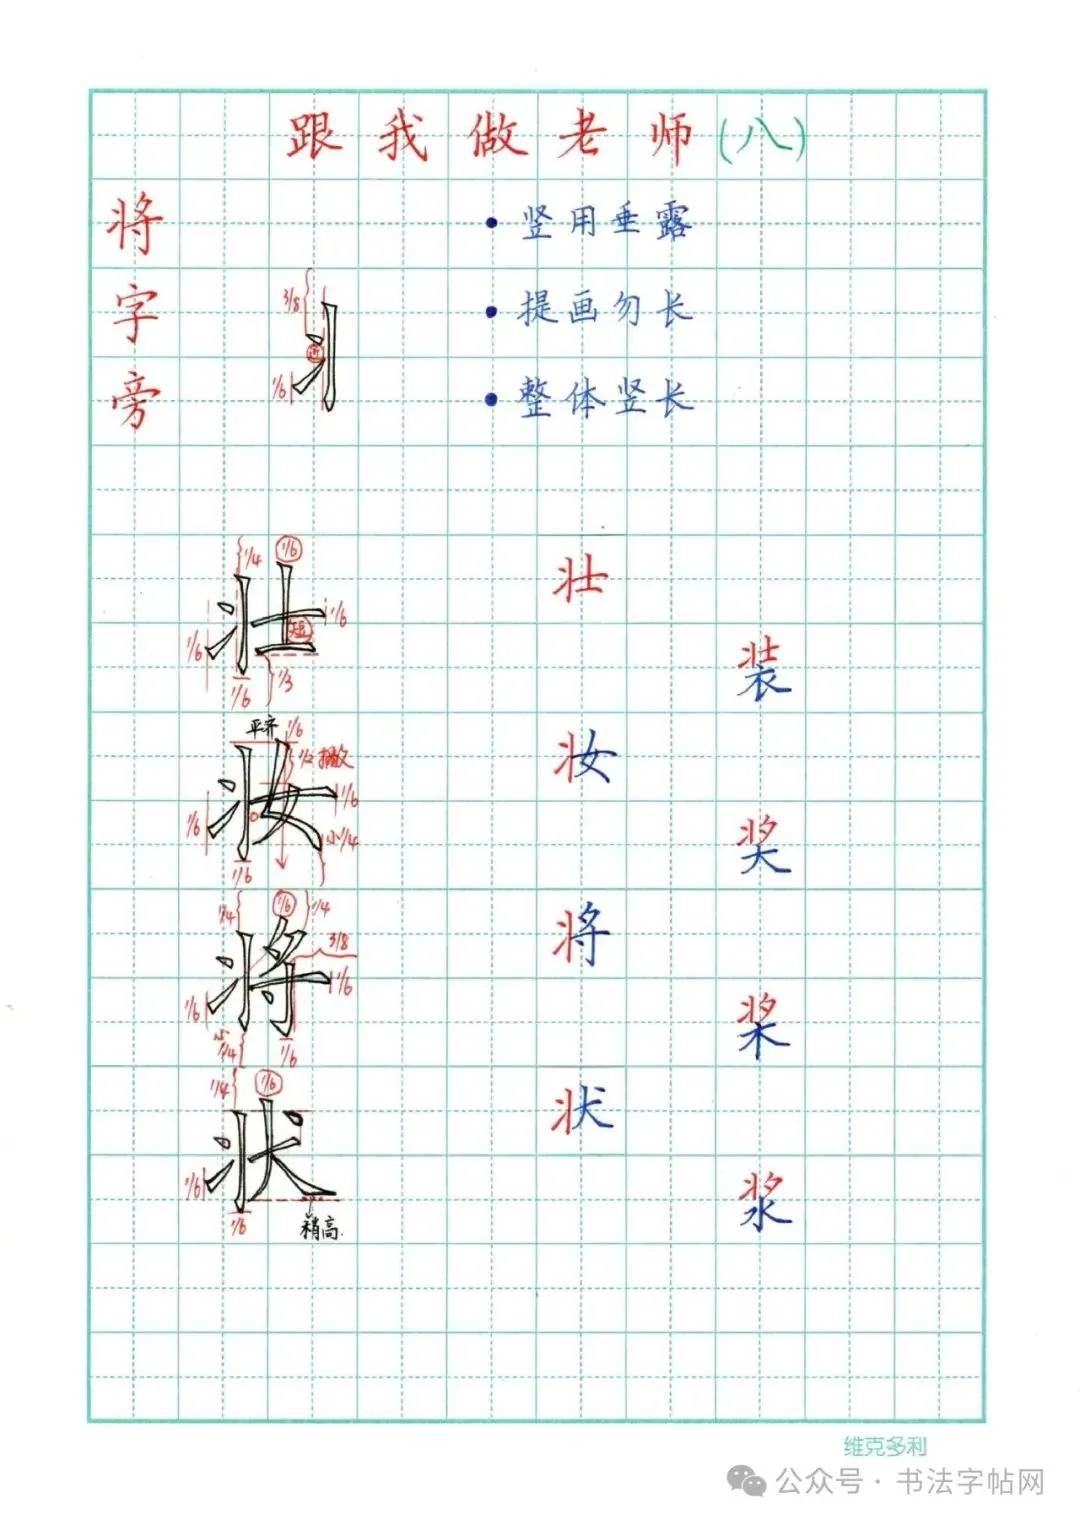 跟我做老师(八)
将字旁
• 竖用垂露
• 提画勿长
• 整体竖长
3/8
近
1/6
1/4 1/6
1/6
短
1/6
1/6 1/3
壮
装
平齐 1/6
1/2 撇
1/6
1/6
小1/4
1/6
妆
奖
1/4 1/6 1/4
3/8
1/6
1/6
1/4 1/6
将
桨
1/4 1/6
1/6
1/6
稍高
状
浆
维克多利
公众号·书法字帖网